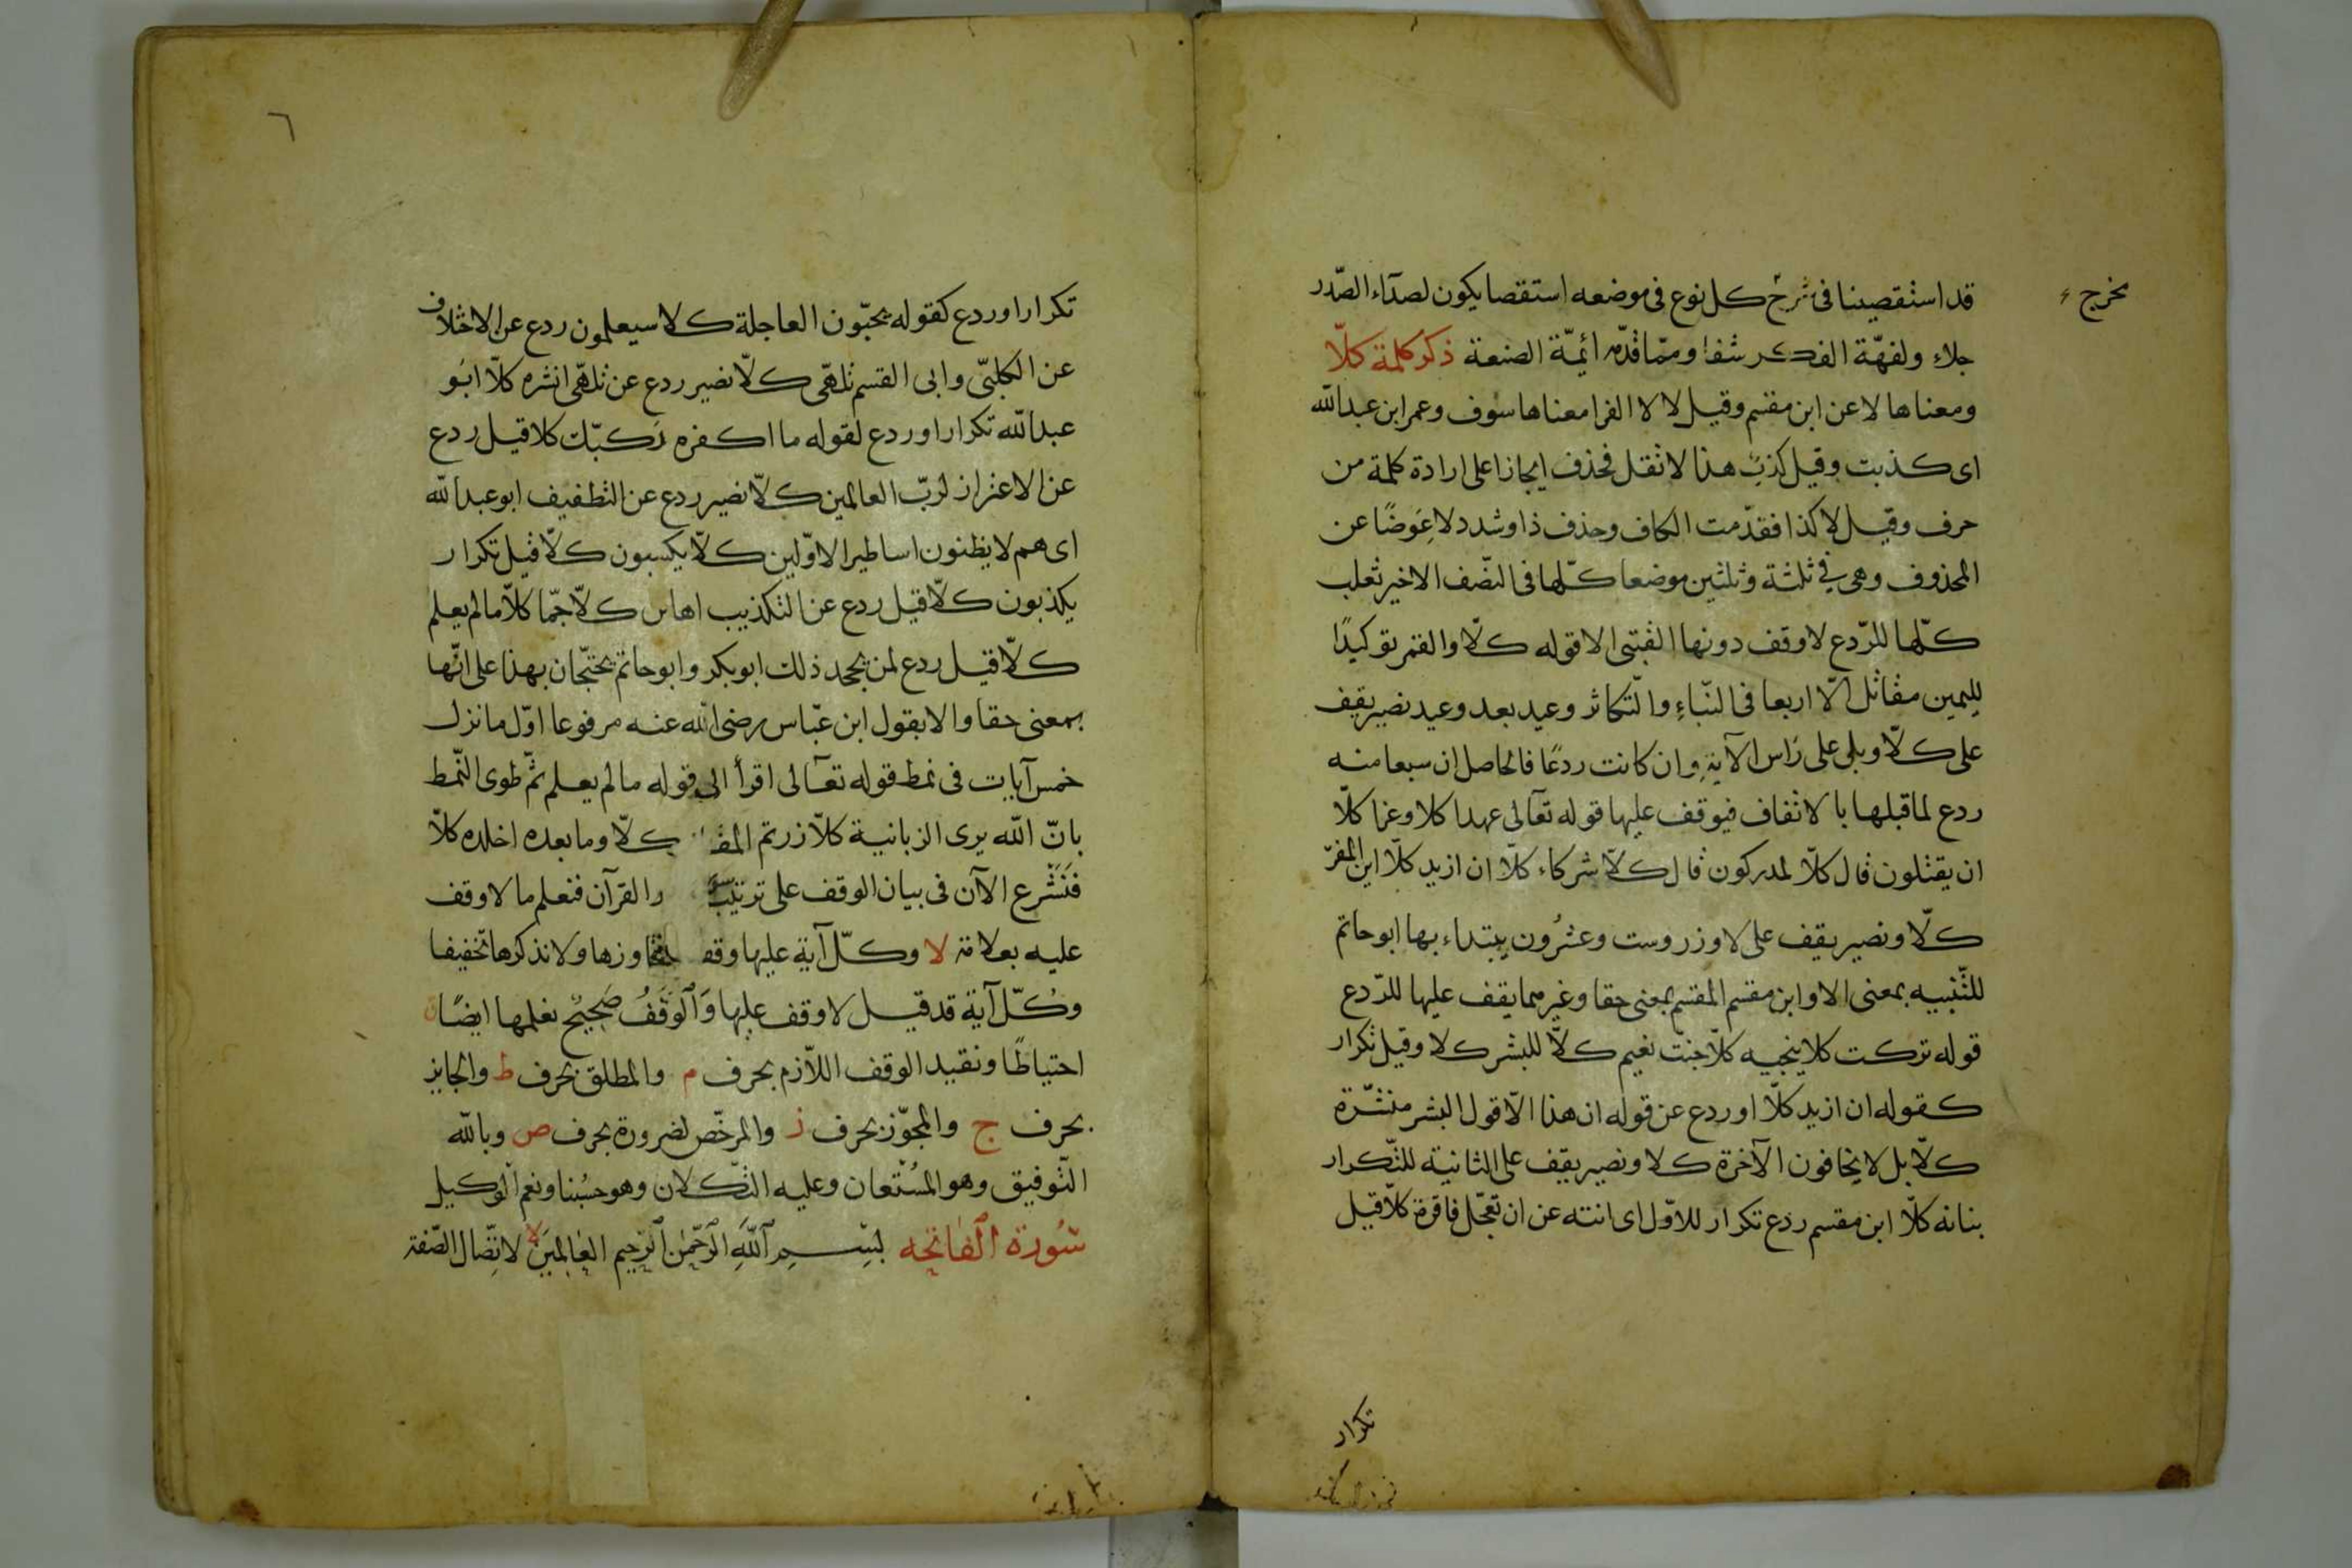 قد استقصينا فى شرح كل نوع فى موضعه استقصا يكون لصدآء الصّدر
جلاء ولفهّة الفكر شفا وممّا قدّمه ائيمّة الصنعة ذكر كلمة كلّا
ومعناها لا عن ابن مقسم وقيل لا لا الفرا معناها سوف وعمر ابن عبدالله
اى كذبت وقيل كذب هذا لا ثقل فحذف ايجازا على ارادة كلمة من
حرف وقيل لا كذا فقدّمت الكاف وحذف ذا وشدد لا عِوَضًا عن
المحذوف وهى فى ثلثة وثلثين موضعا كلّها فى النصّف الاخير ثعلب
كلّها للرّدع لا وقف دونها القبتى الا قوله كلّا والقمر توكيدًا
لليمين مقاتل الّا اربعا فى النّباءِ والتّكاثر وعيد بعد وعيد نصير يقيف
على كلّا وبلى على رَاس الآيةِ وان كانت ردعًا فالحاصل ان سبعا منه
ردع لما قبلها بالاتفاف فيوقف عليها قوله تعآلى عهدا كلا وعزا كلّا
ان يقتلون قال كلّا لمدركون قال كلّا شركاء كلّا ان ازيد كلّا اين المفرّ
كلّا ونصير يقف على لا وزر وست وعشرُون يبتداء بها ابو حاتم
للتّنبيه بمعنى الا وابن مقسم المقسم بمعنى حقا وغيرهما يقف عليها للرّدع
قوله تركت كلا ينجيه كلّا جنّت نعيم كلّا للبشر كلا وقيل تكرار
كقوله ان ازيد كلّا او ردع عن قوله ان هذا الّا قول البشر منشّرة
كلّا بل لا يخافون الآخرة كلا ونصير يقيف على الثانية للتّكرار
بنانه كلّا ابن مقسم ردع تكرار للاوّل اى انته عن ان تعجّل فاقرة كلّا قيل
يخرج
تكرار
٦
تكرارا او ردع كقوله يحبّون العاجلة كلا سيعلمون ردع عن الاختلاف
عن الكلبىّ وابى القسم تلهّى كلّا نصير ردع عن تلهّى انشره كلّا ابو
عبدالله تكرارا او ردع لقوله ما اكفره رَكبّك كلا قيل ردع
عن الاغترار لربّ العالمين كلّا نصير ردع عن التطفيف ابو عبدالله
اى هم لا يظنون اساطير الاوّلين كلّا يكسبون كلّا قيل تكرار
يكذبون كلّا قيل ردع عن التكذيب اهانن كلّا جّما كلّا ما لم يعلم
كلّا قيل ردع لمن يجحد ذلك ابو بكر وابو حاتم يحتجّان بهذا على انّها
بمعنى حقا والا بقول ابن عبّاس رضى الله عنه مرفوعا اوّل ما نزل
خمس آيات فى نمط قوله تعآلى اقرأ الى قوله ما لم يعلم ثمّ طوى النّمط
بانّ الله يرى الزبانية كلّا زرتم المقابر كلّا وما بعده اخلده كلّا
فَنَشْرع الآن فى بيان الوقف على ترتيب والقرآن فنعلم ما لا وقف
عليه بعلامة لا وكلّ آية عليها وقف نتجاوزها ولا نذكرها تخفيفا
وكُلّ آية قد قيل لا وقف عليها وَالْوَقْفُ صَحِيْحٌ نعلمها ايضًا
احتياطًا ونقيد الوقف اللاّزم بحرف م والمطلق بحرف ط والجايز
بحرف ج والمجوّز بحرف ز والمرخّص لضرورة بحرف ص وبالله
التّوفيق وهو المسْتعان وعليه التّكلان وهو حسْبنا ونعم الوكيل
سُورة الفاتحه بسم اللّه الرّحمن الرّحيم العالمينَ لا لاتّصال الصّفة